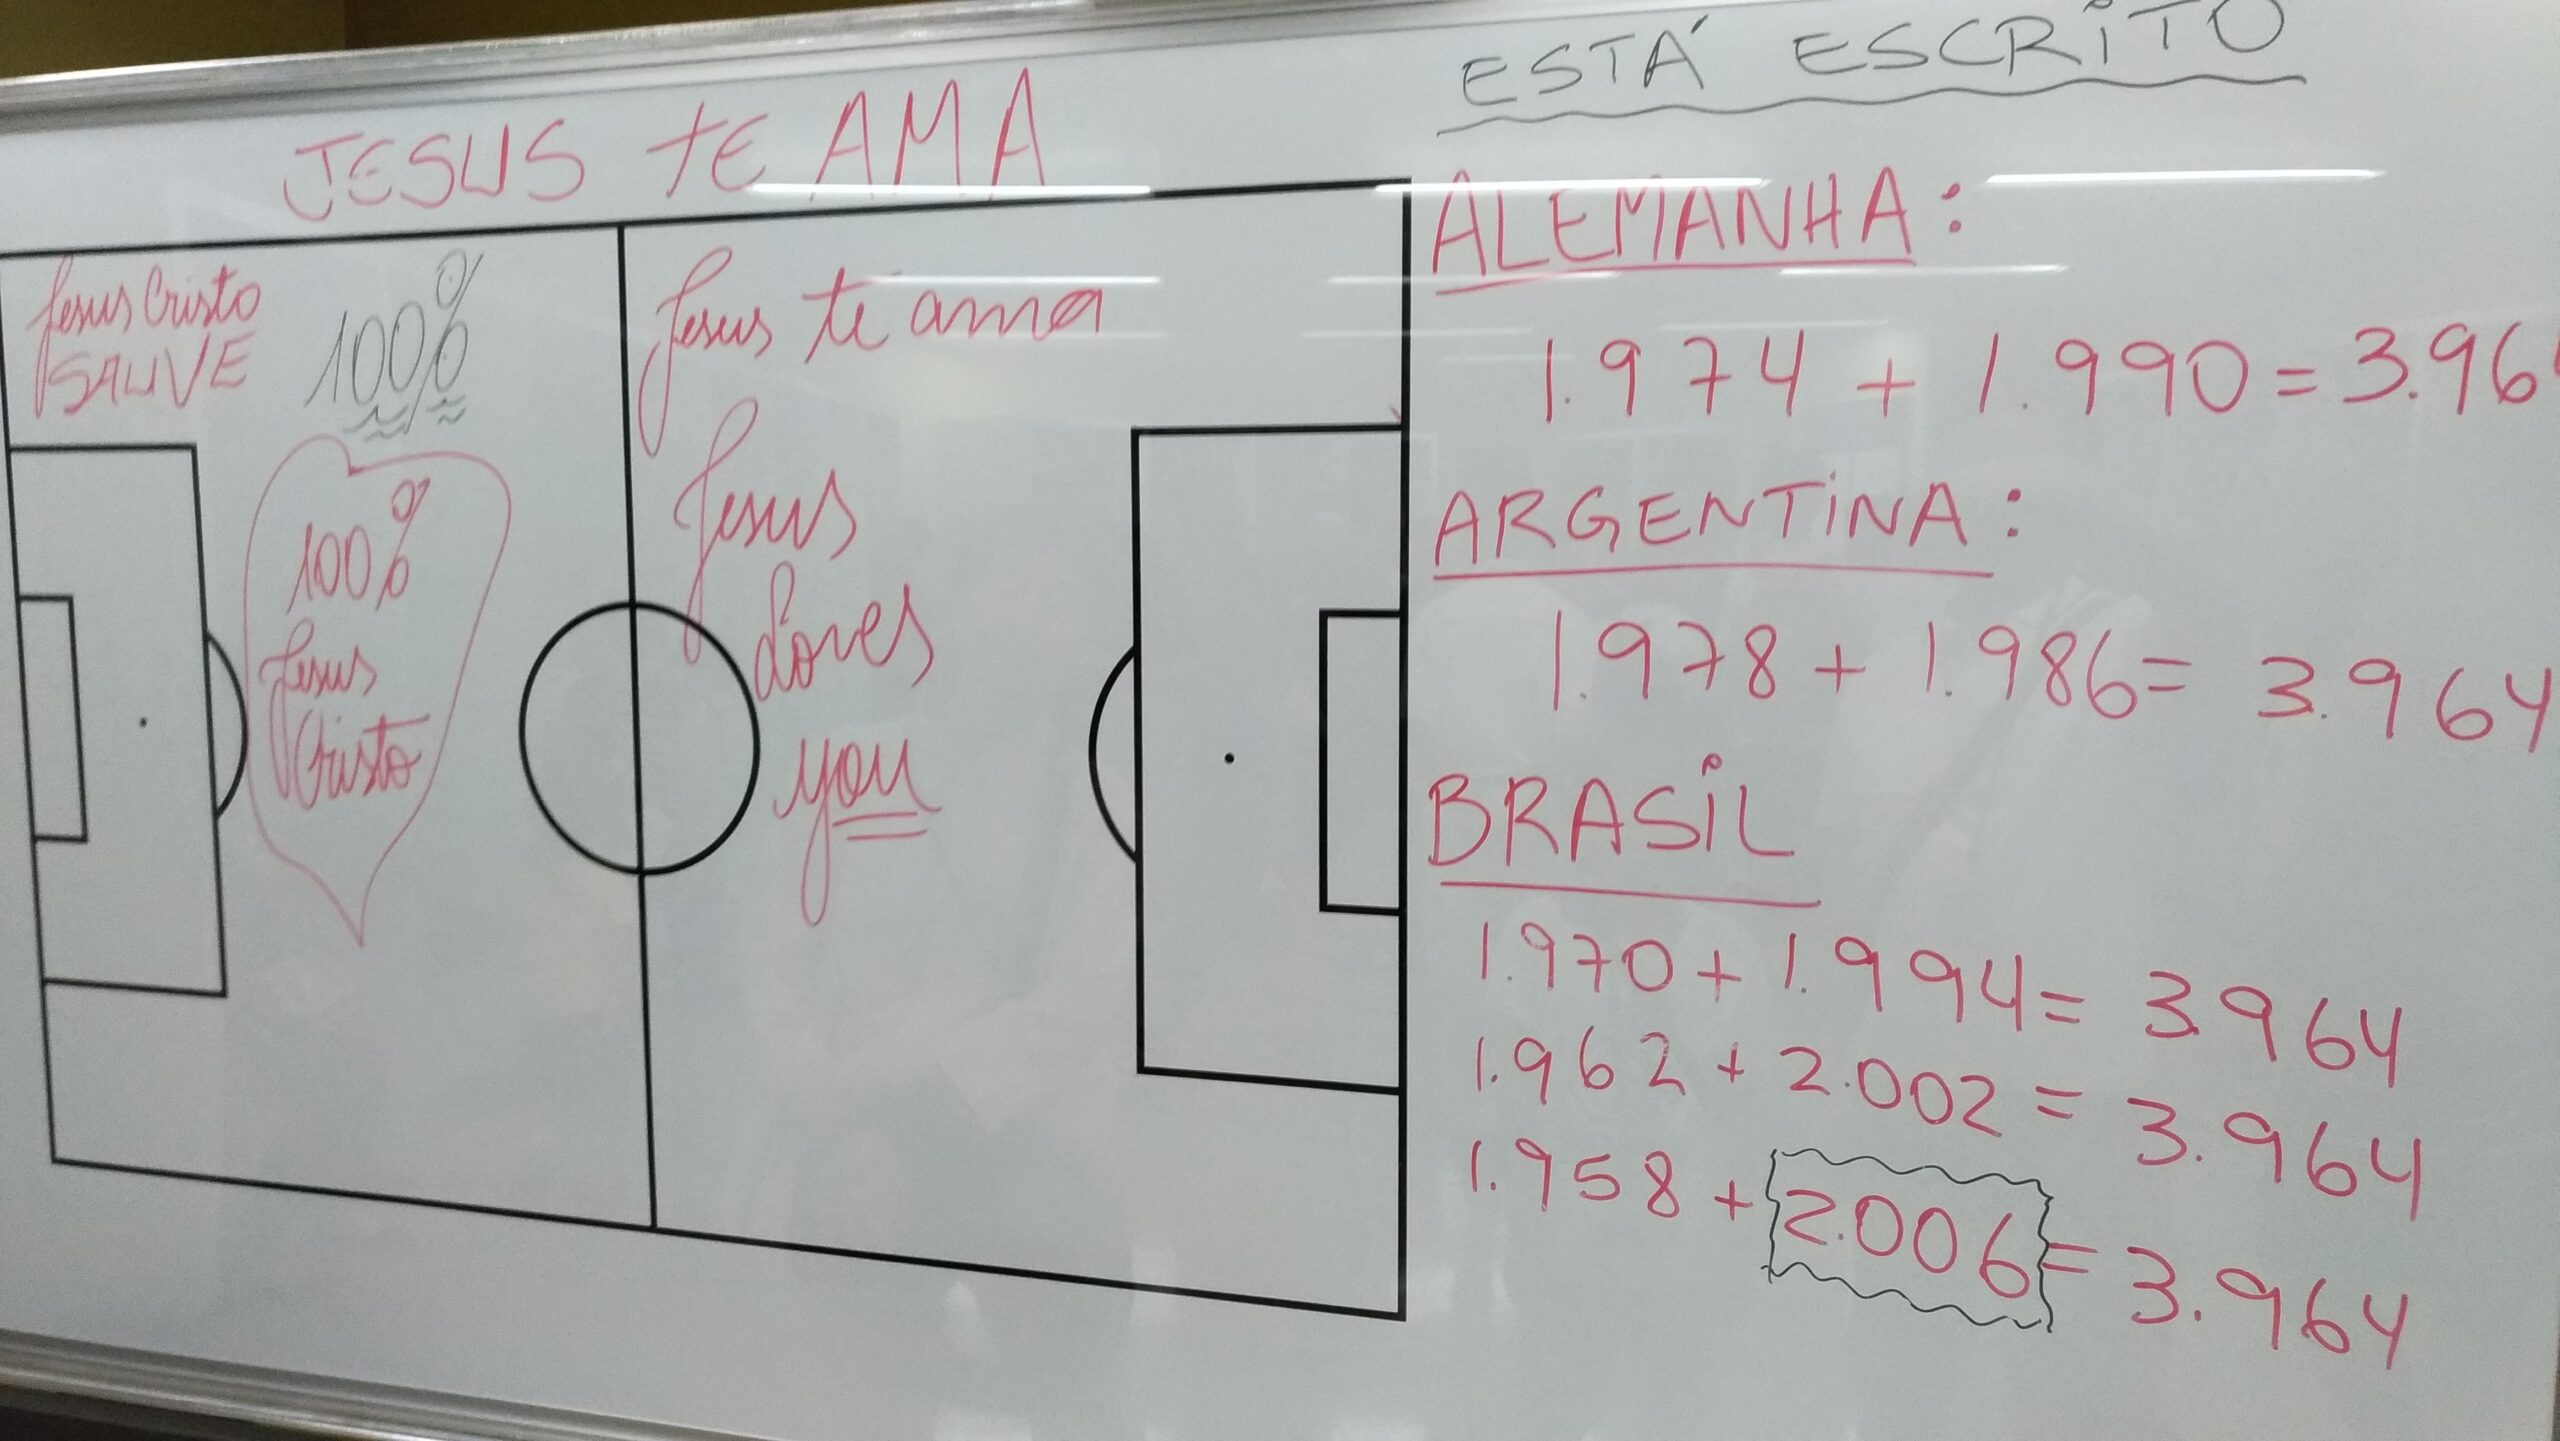 JESUS TE AMA
Jesus Cristo
SALVE
100%
100%
Jesus
Cristo
Jesus te ama
Jesus
Loves
you
ESTÁ ESCRITO
ALEMANHA:
1.974 + 1.990 = 3.96
ARGENTINA:
1.978 + 1.986 = 3.964
BRASIL
1.970 + 1.994 = 3.964
1.962 + 2.002 = 3.964
1.958 + 2.006 = 3.964